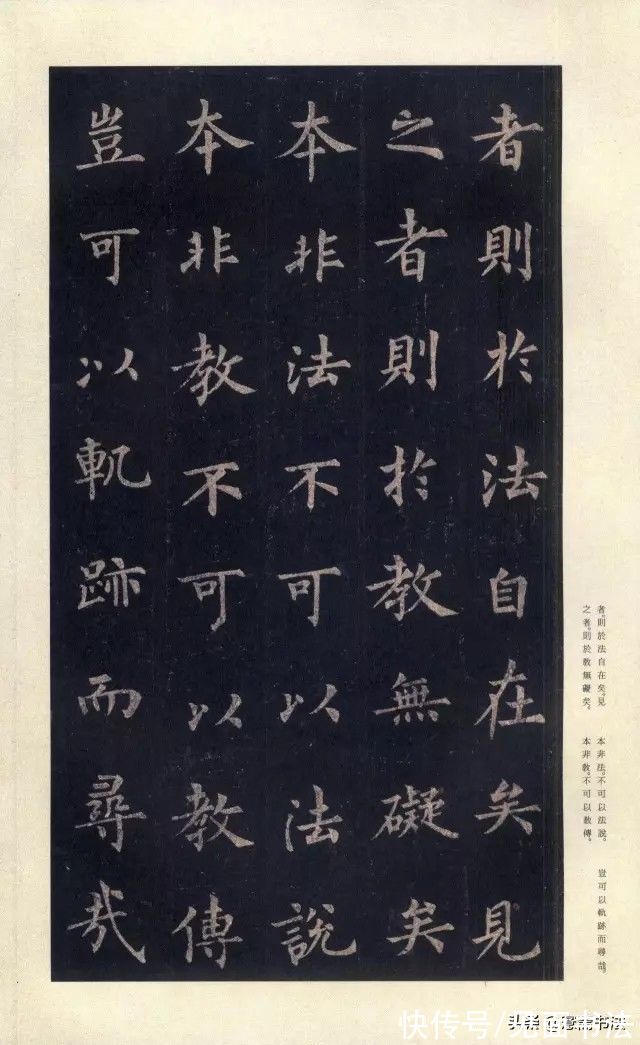 者則於法自在矣見
之者則於教無礙矣
本非法不可以法說
本非教不可以教傳
豈可以軌跡而尋哉
者。則於法自在矣。見
之者。則於教無礙矣。
本非法。不可以法說。
本非教。不可以教傳。
豈可以軌跡而尋哉。
快传号/
书法